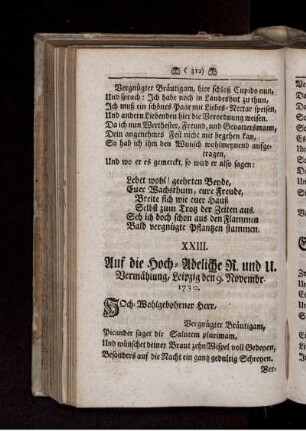 ( 312 )
Vergnügter Bräutigam, hier schloß Cupido nun,
Und sprach: Ich habe noch in Landeshut zu thun,
Ich muß ein schönes Paar mit Liebes-Nectar speisen,
Und andern Liebenden hier die Verordnung weisen.
Da ich nun Werthester, Freund, und Gevattersmann,
Dein angenehmes Fest nicht mit begehen kan,
So hab ich ihm den Wunsch wohlmeynend aufge-
tragen,
Und wo er es gemerckt, so wird er also sagen:
Lebet wohl! geehrten Beyde,
Euer Wachsthum, eure Freude,
Breite sich wie euer Hauß
Selbst zum Trotz der Zeiten aus.
Seh ich doch schon aus den Flammen
Bald vergnügte Pflantzen stammen.
XXIII.
Auf die Hoch-Adeliche R. und U.
Vermählung, Leipzig den 9. Novembr.
1730.
Hoch-Wohlgebohrner Herr,
Vergnügter Bräutigam,
Picander saget die Salutem plurimam,
Und wünschet deiner Braut zehn Wispel voll Gedeyen,
Besonders auf die Nacht ein gantz gedultig Schreyen.
Ver-